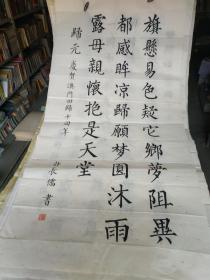 旗懸易色疑它鄉夢阻異
都感眸凉歸願夢圓沐雨
露母親懷抱是天堂
歸元 慶賀澳門回歸十四年
長儒書